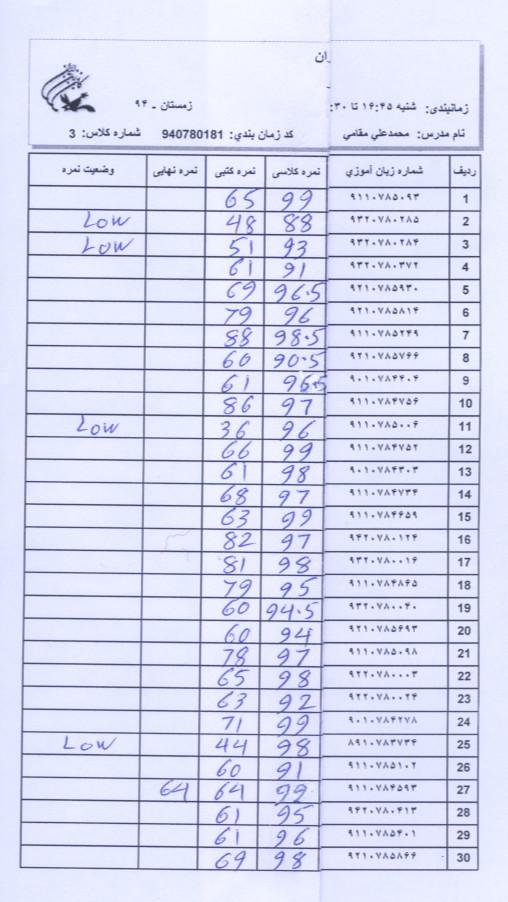 ان
زمانبندی: شنبه ۱۶:۴۵ تا ۳۰: زمستان ـ ۹۴
نام مدرس: محمدعلي مقامي کد زمان بندي: 940780181 شماره کلاس: 3
ردیف شماره زبان آموزي نمره کلاسی نمره کتبی نمره نهایی وضعیت نمره
1 ۹۱۱۰۷۸۵۰۹۳ 99 65
2 ۹۳۲۰۷۸۰۲۸۵ 88 48 Low
3 ۹۳۲۰۷۸۰۲۸۴ 93 51 Low
4 ۹۳۲۰۷۸۰۳۷۲ 91 61
5 ۹۲۱۰۷۸۵۹۳۰ 96.5 69
6 ۹۲۱۰۷۸۵۸۱۴ 96 79
7 ۹۱۱۰۷۸۵۲۴۹ 98.5 88
8 ۹۲۱۰۷۸۵۷۶۶ 90.5 60
9 ۹۰۱۰۷۸۴۴۰۴ 96.5 61
10 ۹۱۱۰۷۸۴۷۵۶ 97 86
11 ۹۱۱۰۷۸۵۰۰۶ 96 36 Low
12 ۹۱۱۰۷۸۴۷۵۲ 99 66
13 ۹۰۱۰۷۸۴۳۰۳ 98 61
14 ۹۱۱۰۷۸۴۷۳۴ 97 68
15 ۹۱۱۰۷۸۴۶۵۹ 99 63
16 ۹۴۲۰۷۸۰۱۲۴ 97 82
17 ۹۳۲۰۷۸۰۰۱۶ 98 81
18 ۹۱۱۰۷۸۴۸۶۵ 95 79
19 ۹۳۲۰۷۸۰۰۴۰ 94.5 60
20 ۹۲۱۰۷۸۵۶۹۳ 94 60
21 ۹۱۱۰۷۸۵۰۹۸ 97 78
22 ۹۲۲۰۷۸۰۰۰۳ 98 65
23 ۹۲۲۰۷۸۰۰۲۴ 92 63
24 ۹۰۱۰۷۸۴۲۷۸ 99 71
25 ۸۹۱۰۷۸۳۷۳۴ 98 44 Low
26 ۹۱۱۰۷۸۵۱۰۲ 91 60
27 ۹۱۱۰۷۸۴۵۹۳ 99 64 64
28 ۹۴۲۰۷۸۰۴۱۳ 95 61
29 ۹۱۱۰۷۸۵۴۰۱ 96 61
30 ۹۲۱۰۷۸۵۸۶۶ 98 69